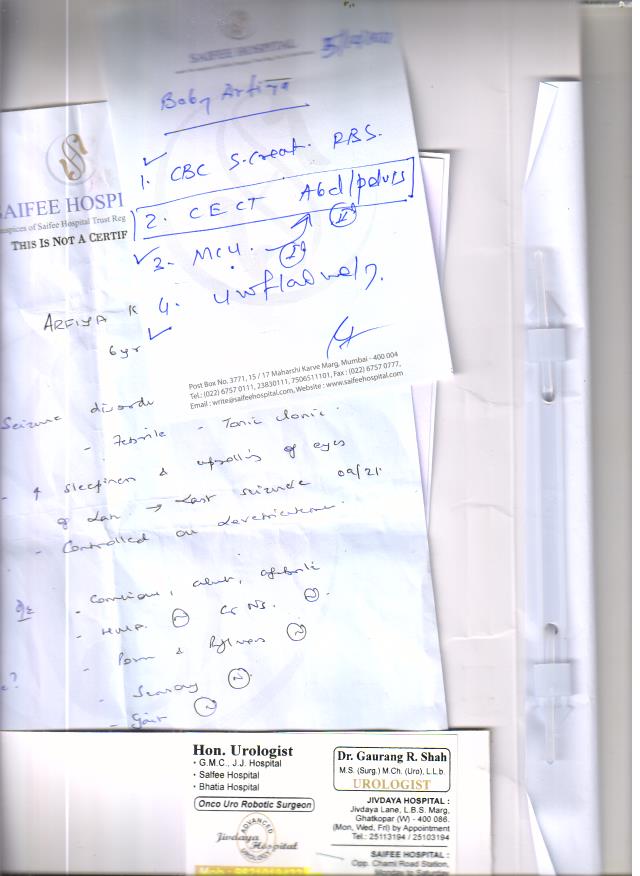 SAIFEE HOSPITAL
Baby Arfiya
1. CBC S.Creat. RBS.
2. CECT Abd/pelvis
3. MCU.
4. Uroflowmetry.
Post Box No. 3771, 15 / 17 Maharshi Karve Marg, Mumbai - 400 004
Tel.: (022) 6757 0111, 23830111, 7506511101, Fax : (022) 6757 0777,
Email : write@saifeehospital.com, Website : www.saifeehospital.com
SAIFEE HOSPI
THIS IS NOT A CERTIF
ARFIYA K
6yr
Seizure disorde
- Febrile - Tonic clonic.
sleepiness & uprolling of eyes
→ Last seizure 09/21.
- Controlled on
- Conscious, alert, afebrile
- HMF. N
N
- Power & Reflexes N
- Sensory N
- Gait N
Hon. Urologist
• G.M.C., J.J. Hospital
• Saifee Hospital
• Bhatia Hospital
Onco Uro Robotic Surgeon
ADVANCED
Jivdaya Hospital
UROLOGY
Dr. Gaurang R. Shah
M.S. (Surg.) M.Ch. (Uro), L.L.b.
UROLOGIST
JIVDAYA HOSPITAL :
Jivdaya Lane, L.B.S. Marg,
Ghatkopar (W) - 400 086.
(Mon, Wed, Fri) by Appointment
Tel.: 25113194 / 25103194
SAIFEE HOSPITAL :
Opp. Charni Road Station,
Monday to Saturday